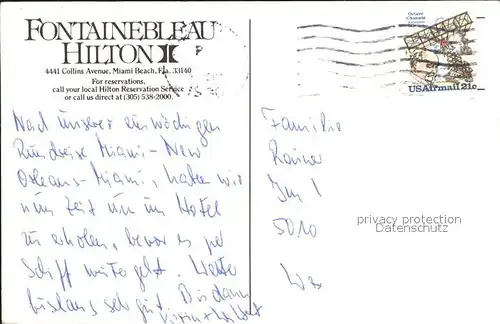 FONTAINEBLEAU
HILTON
4441 Collins Avenue, Miami Beach, Fla. 33140
For reservations,
call your local Hilton Reservation Service
or call us direct at (305) 538-2000.
Nach unserer einwöchigen
Rundreise Miami-New
Orleans-Miami, haben wir
nun Zeit uns im Hotel
zu erholen, bevor es per
Schiff weitergeht. Wetter
bislang sehr gut. Bis dann
Octave
Chanute
USAirmail 21c
Familie
Rainer
5010
privacy protection
Datenschutz